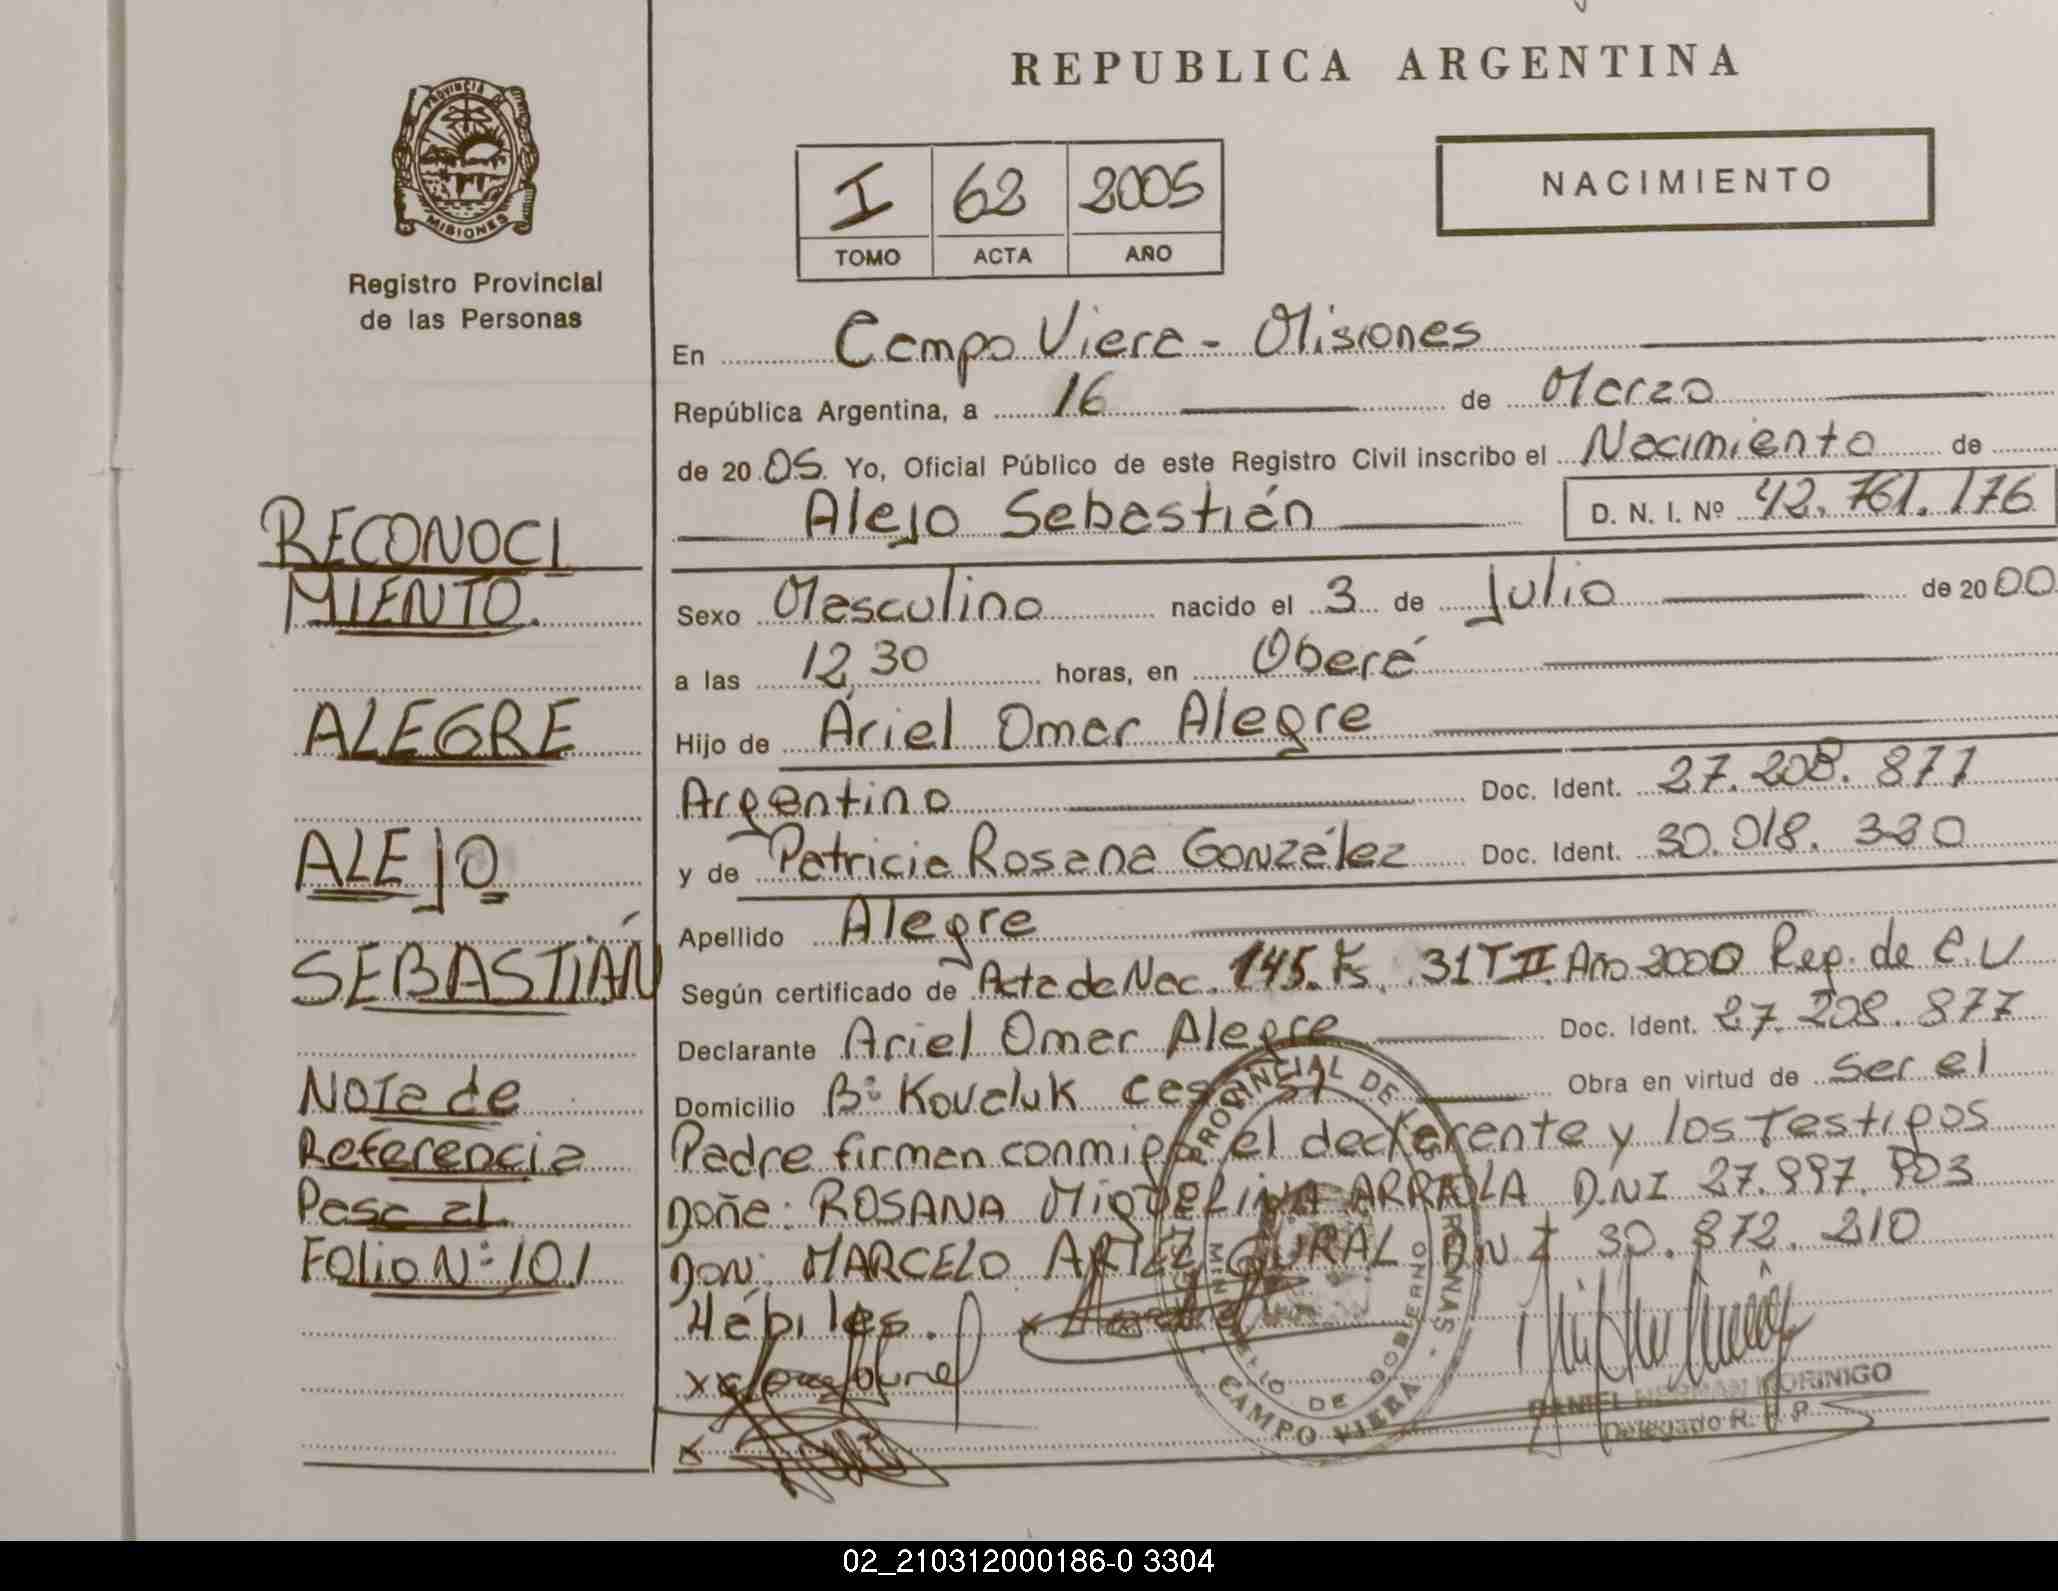 REPUBLICA ARGENTINA
PROVINCIA DE
MISIONES
Registro Provincial
de las Personas
I 62 2005
TOMO ACTA AÑO
NACIMIENTO
En Campo Viera - Misiones
República Argentina, a 16 de Marzo
de 2005. Yo, Oficial Público de este Registro Civil inscribo el Nacimiento de
Alejo Sebastián D. N. I. Nº 42.761.176
Sexo Masculino nacido el 3 de Julio de 2000
a las 12,30 horas, en Oberá
Hijo de Ariel Omar Alegre
Argentino Doc. Ident. 27.208.877
y de Patricia Rosana González Doc. Ident. 30.018.330
Apellido Alegre
Según certificado de Acta de Nac. 145. Fs. 31 T II Año 2000 Reg. de C.V
Declarante Ariel Omar Alegre Doc. Ident. 27.208.877
Domicilio Bº Kovaluk casa 51 Obra en virtud de ser el
Padre firman conmigo el declarante y los Testigos
Doña: ROSANA MIQUELINA ARRIOLA D.N.I 27.997.903
DON: MARCELO ARIEL GURAL D.N.I 30.872.210
Hábiles.
RECONOCI
MIENTO.
ALEGRE
ALEJO
SEBASTIÁN
Nota de
Referencia
Pasa al
Folio N: 101
PROVINCIAL DE LAS PERSONAS
MINISTERIO DE GOBIERNO
CAMPO VIERA
DANIEL HERNAN MORINIGO
Delegado R. P. P.
02_210312000186-0 3304